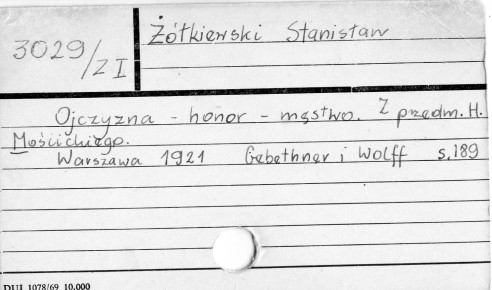 3029/ZI
Żółkiewski Stanisław
Ojczyzna - honor - męstwo. Z przedm. H.
Mościckiego.
Warszawa 1921 Gebethner i Wolff s.189
DUI 1078/69 10.000